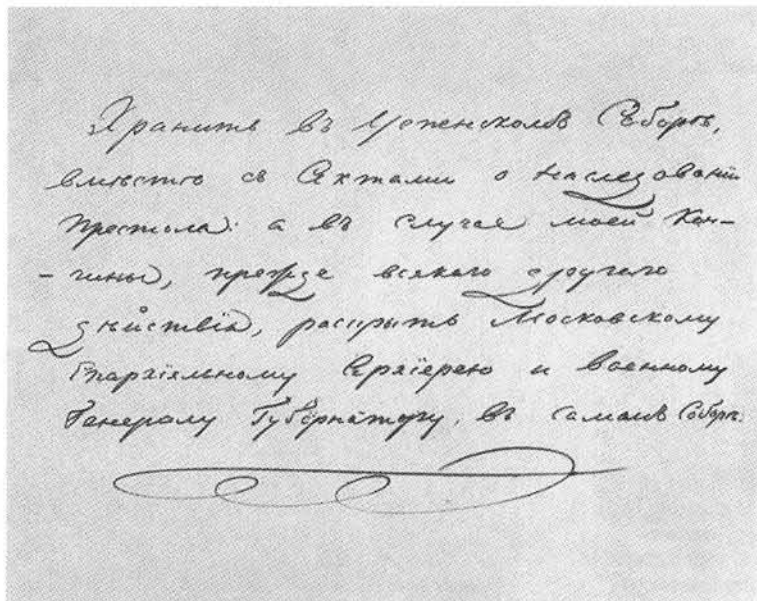 Хранить въ Успенскомъ Соборѣ,
вмѣстѣ съ Актами о наслѣдованіи
Престола: а въ случаѣ моей кон-
-чины, прежде всякаго другаго
дѣйствія, раскрыть Московскому
Епархіяльному Архіерею и Военному
Генералу Губернатору, въ самомъ Соборѣ.